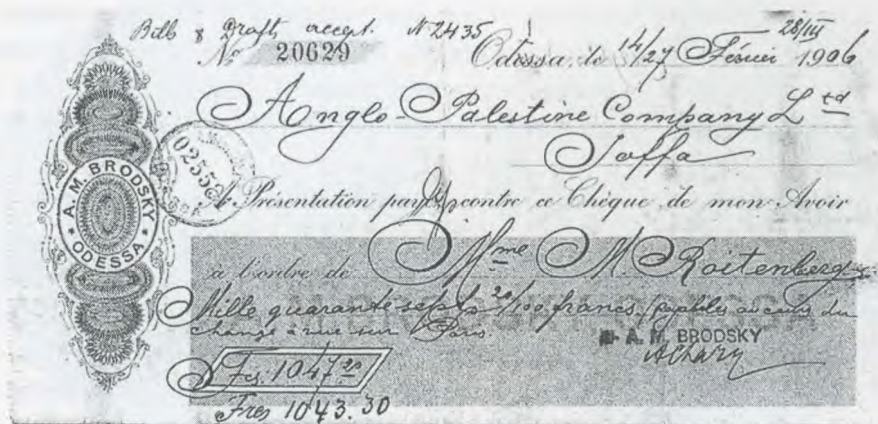 Bills & Drafts accept. N 2435
28/III
No 20629
Odessa, le 14/27 Février 1906
Anglo-Palestine Company Ltd
Jaffa
A. M. BRODSKY
ODESSA
A Présentation payez contre ce Chèque de mon Avoir
à l'ordre de Mme M. Roitenberg
Mille quarante sept 20/100 francs, payables au cours du
change à vue sur Paris.
A. M. BRODSKY
Fcs. 1047 20
Frcs 1043.30